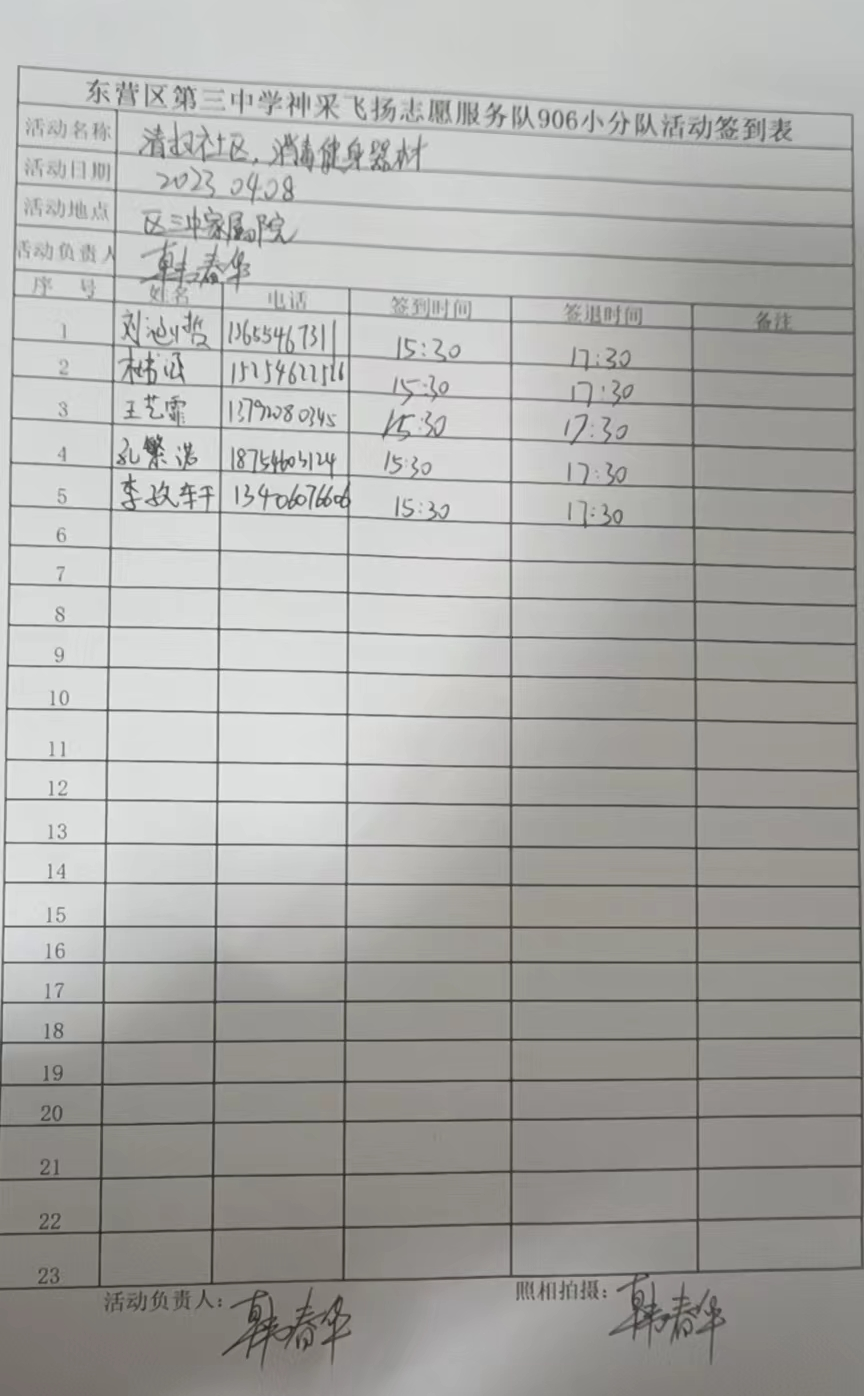 东营区第三中学神采飞扬志愿服务队906小分队活动签到表
活动名称 清扫社区，消毒健身器材
活动日期 2023 04.08
活动地点 区三中家属院
活动负责人 韩春华
序 号 姓名 电话 签到时间 签退时间 备注
1 刘 哲 13655467311 15:30 17:30
2 15:30 17:30
3 王艺霏 13792080345 15:30 17:30
4 孔繁诺 18754603124 15:30 17:30
5 李孜轩 13406076606 15:30 17:30
6
7
8
9
10
11
12
13
14
15
16
17
18
19
20
21
22
23
活动负责人：韩春华 照相拍摄：韩春华